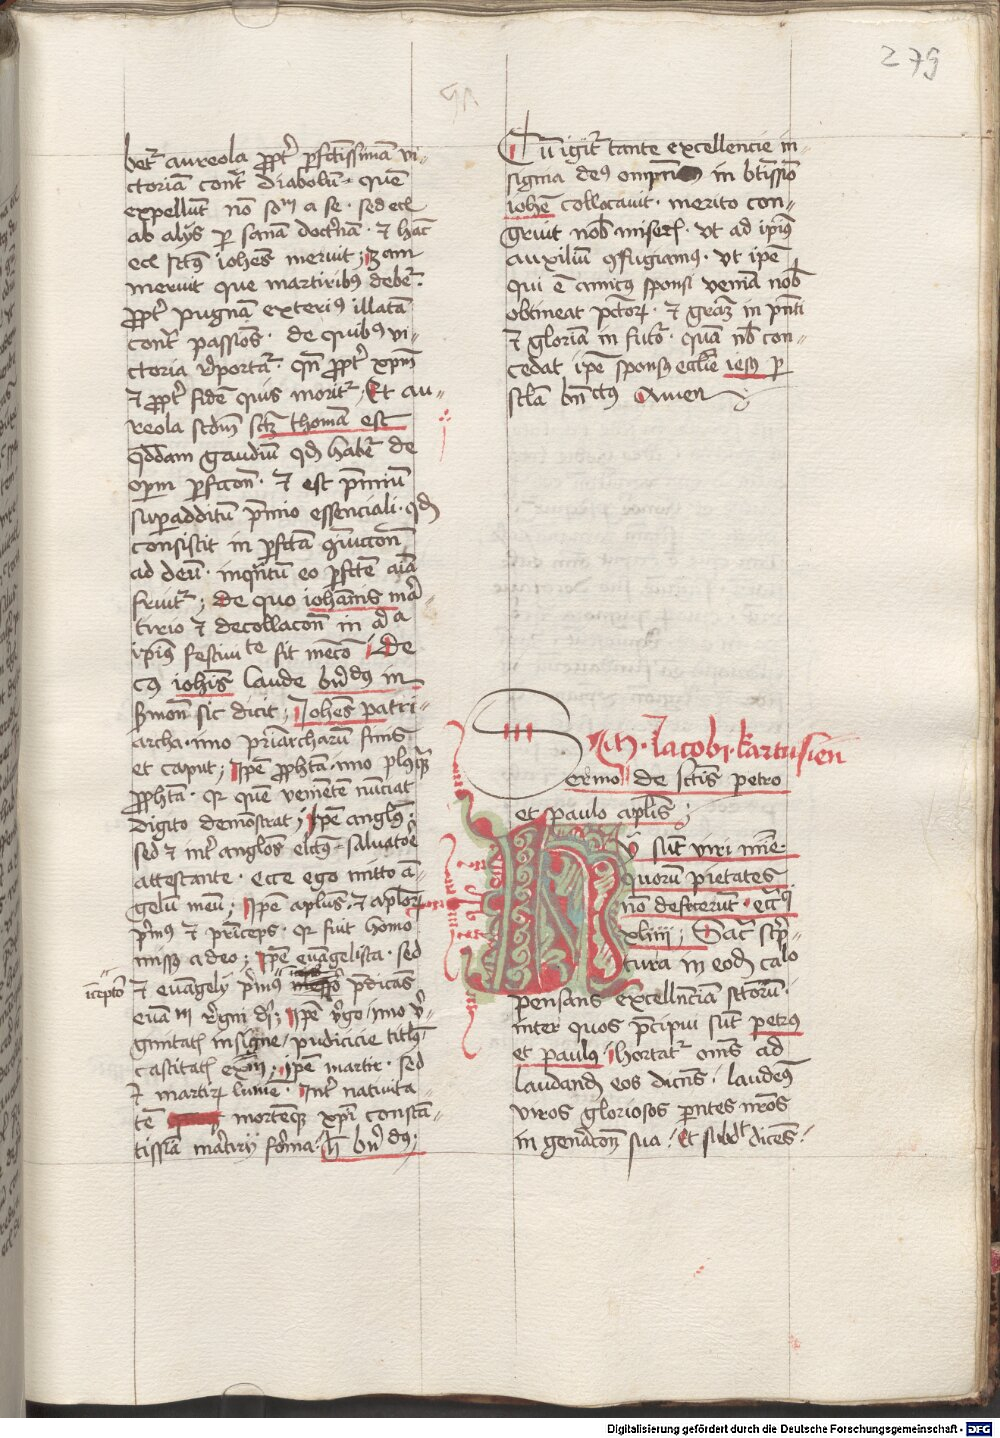 279
betur aureola propter perfectissimam vi-
ctoriam contra diabolum · quem
expellunt non solum a se · sed eciam
ab alijs per sanam doctrinam · et hanc
eciam sanctus iohannes meruit ; Nam
meruit que martiribus debetur ·
propter pugnam exterius illatam
contra passiones · de quibus vi-
ctoria reportatur · quando propter xpm
et propter fidem quis moritur / Et au-
reola secundum sanctum thomam est
quoddam gaudium quod habetur de
operum perfeccione · et est premium
superadditum premio essenciali · quod
consistit in perfecta coniunccione
ad deum · inquantum eo perfecte anima
fruitur ; de quo iohannis mar-
tirio et decollacione in
ipsius festiuitate fit mencio / De
cuius iohannis laude bernhardus in
sermone sic dicit ; Iohannes patri-
archa · imo patriarcharum finis
et caput ; Ipse propheta · imo plusquam
propheta · quia quem venientem nunciat
digito demonstrat ; Ipse angelus ·
sed et inter angelos electus · saluatore
attestante · ecce ego mitto an-
gelum meum ; Ipse apostolus · et apostolorum
primus et princeps · quia fuit homo
missus a deo ; Ipse euangelista · sed
et euangelij primus inceptor predicans
euangelium regni dei ; Ipse virgo / imo vir-
ginitatis insigne / pudicicie titulus
castitatis exemplum ; ipse martir · sed
et martirum lumen · Inter natiuita-
tem mortemque xpi constan-
tissima martirij forma · hec bernhardus ·
Cum igitur tante excellencie in-
signia deus omnipotens in beatissimo
iohanne collocauit · merito con-
gruit nobis miseris · vt ad ipsius
auxilium confugiamus · vt ipse
qui est amicus sponsi veniam nobis
obtineat peccatorum · et graciam in presenti
et gloriam in futuro · quam nobis con-
cedat ipse sponsus ecclesie iesus per
secula benedictus Amen
M · Iacobi · kartusien
Sermo de sanctis petro
et paulo apostolis ;
Hij sunt viri misericordie
quorum pietates
non defecerunt · ecclesiasticus
xliiii ; Sacra scrip-
tura in eodem capitulo
pensans excellenciam sanctorum ·
inter quos precipui sunt petrus
et paulus / hortatur omnes ad
laudandum eos dicens · laudemus
viros gloriosos parentes nostros
in generacione sua / Et subdit dicens /
Digitalisierung gefördert durch die Deutsche Forschungsgemeinschaft - DFG